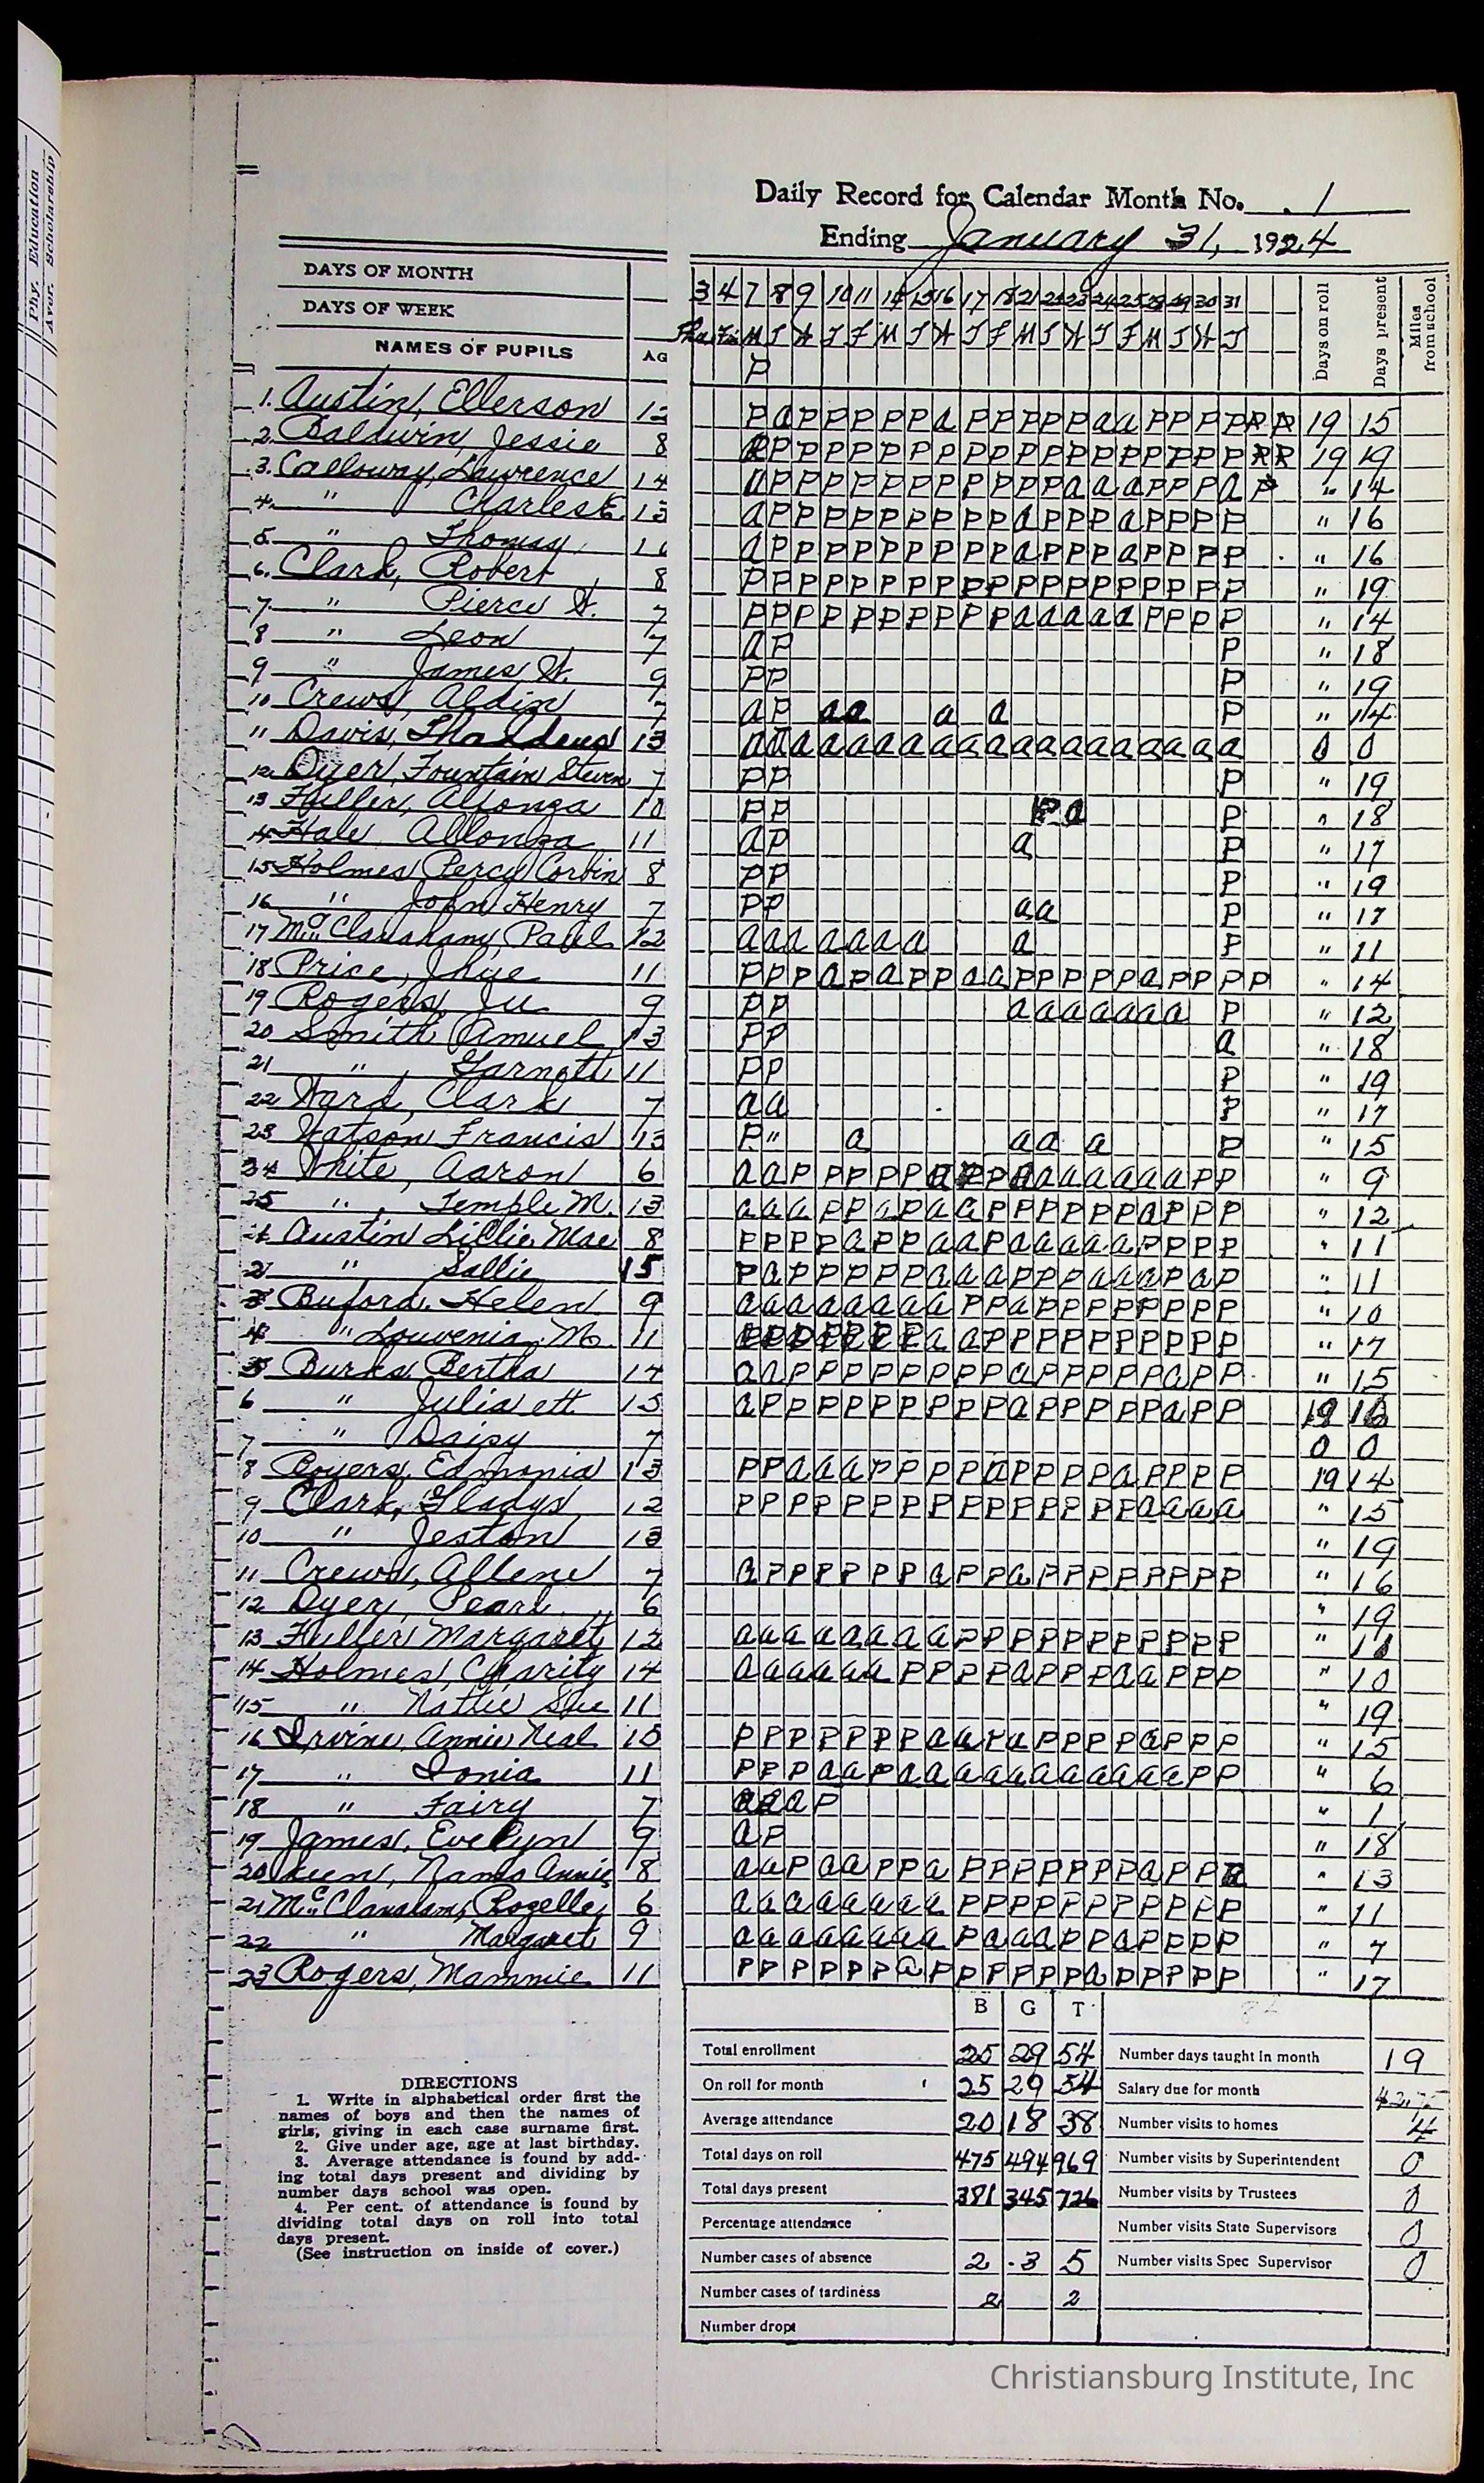 Phy. Education
Aver. Scholarship
Daily Record for Calendar Month No. 1
Ending January 31, 1924
DAYS OF MONTH 3 4 7 8 9 10 11 14 15 16 17 18 21 22 23 24 25 28 29 30 31
DAYS OF WEEK Thu Fri M T W T F M T W T F M T W T F M T W T
NAMES OF PUPILS AG Days on roll Days present Miles from school
P
1. Austin, Ellerson 12 P a P P P P P P a P P P P P a a P P P P 19 15
2. Baldwin, Jessie 8 19 19
3. Calloway, Lawrence 14 " 14
4. " Charles E. 13 a P P P P P P P P P P a P P P a P P P P " 16
5. " Thomas " 16
6. Clark, Robert 8 P P P P P P P P P P P P P P P P P P P " 19
7 " Pierce W. 7 P P P P P P P P P P P a a a a a P P P P " 14
8 " Leon 7 a P P " 18
9 " James W. 9 P P P " 19
10 Crews, Aldin 7 a P a a a a P " 14
11 Davis, Thaddeus 13 a a a a a a a a a a a a a a a a a a a 0 0
12 Dyer, Fountain Steven 7 P P P " 19
13 Fuller, Allonza 10 P P P a P " 18
14 Hale Allonza 11 a P a P " 17
15 Holmes Percy Corbin 8 P P P " 19
16 " John Henry 7 P P a a P " 17
17 McClanaham, Paul 12 a a a a a a a a P " 11
18 Price, 11 P P P a P a P P a a P P P P P a P P P P " 14
19 Rogers, Ju 9 P P a a a a a a a P " 12
20 Smith, Amuel 13 P P a " 18
21 " Garnett 11 P P P " 19
22 Ward, Clark 7 a a P " 17
23 Watson, Francis 13 P " a a a a P " 15
24 White, Aaron 6 " 9
25 " Temple M. 13 " 12
Austin Lillie Mae 8 P P P P a P P a a P a a a a a P P P P " 11
2 " Sallie 15 P a P P P P P a a a P P P a a a P a P " 11
3 Buford, Helen 9 a a a a a a a a P P a P P P P P P P P " 10
4 " Louvenia M. 11 " 17
5 Burks, Bertha 14 a a P P P P P P P P P a P P P P P a P P " 15
6 " Juliaett 15 a P P P P P P P P P P a P P P P P a P P 19 16
7 " Daisy 7 0 0
8 Edmonia 13 P P a a a P P P P P a P P P P a P P P P 19 14
9 Clark, Gladys 12 P P P P P P P P P P P P P P P a a a a " 15
10 " Jeston 13 " 19
11 Crews, Allene 7 a P P P P P P a P P a P P P P P P P P " 16
12 Dyer, Pearl 6 " 19
13 Fuller Margaret 12 a a a a a a a a P P P P P P P P P P P " 11
14 Holmes, Charity 14 a a a a a a P P P P a P P P a a P P P " 10
15 " Nattie Sue 11 " 19
16 Irvine, Annie Neal 10 P P P P P P P a a P a P P P P a P P P " 15
17 " Ionia 11 P P P a a P a a a a a a a a a a a P P " 6
18 " Fairy 7 a a a P " 1
19 James, Evelyn 9 a P " 18
20 8 a a P a a P P a P P P P P P P a P P " 13
21 McClanaham, Rozelle 6 a a a a a a a a P P P P P P P P P P P " 11
22 " Margaret 9 a a a a a a a a P a a a P P a P P P P " 7
23 Rogers, Mammie 11 P P P P P P a P P P P P P a P P P P P " 17
B G T
Total enrollment 25 29 54 Number days taught in month 19
On roll for month 25 29 54 Salary due for month
Average attendance 20 18 38 Number visits to homes 4
Total days on roll 475 494 969 Number visits by Superintendent 0
Total days present 381 345 726 Number visits by Trustees 0
Percentage attendance Number visits State Supervisors 0
Number cases of absence 2 3 5 Number visits Spec Supervisor 0
Number cases of tardiness 2 2
Number dropt
DIRECTIONS
1. Write in alphabetical order first the
names of boys and then the names of
girls, giving in each case surname first.
2. Give under age, age at last birthday.
3. Average attendance is found by add-
ing total days present and dividing by
number days school was open.
4. Per cent. of attendance is found by
dividing total days on roll into total
days present.
(See instruction on inside of cover.)
Christiansburg Institute, Inc